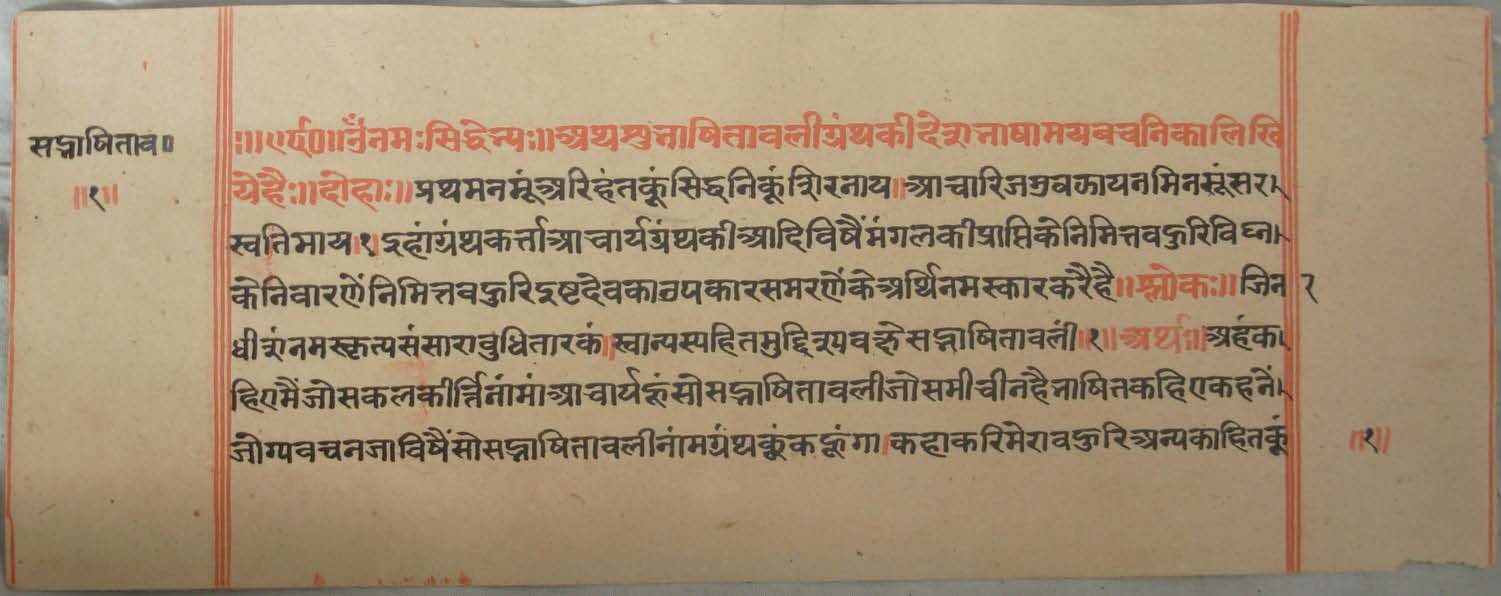 सद्भाषिताव॰
॥१॥
॥ॐनमःसिद्धेभ्यः॥अथसुभाषितावलीग्रंथकीदेशभाषामयवचनिकालिखि
येहैः॥दोहाः॥प्रथमनमूंअरिहंतकूंसिद्धनिकूंशिरनाय॥आचारिजउवझायनमिनमूंसर
स्वतिमाय१इहांग्रंथकर्त्ताआचार्यग्रंथकीआदिविषैंमंगलकीप्राप्तिकेनिमित्तवहुरिविघ्न
केनिवारणेंनिमित्तवहुरिइष्टदेवकाउपकारसमरणेंकेअर्थिनमस्कारकरैहै॥श्लोकः॥जिन
धीशंनमस्कृत्यसंसारांवुधितारकं।स्वान्यस्यहितमुद्दिश्यवक्ष्येसद्भाषितावलीं॥१॥अर्थः॥अहंक
हिएमैंजोसकलकीर्त्तिनांमांआचार्यहूंसोसद्भाषितावलीजोसमीचीनहैभाषितकहिएकहनें
जोग्यवचनजाविषैंसोसद्भाषितावलीनांमग्रंथकूंकहूंगा।कहाकरिमेरावहुरिअन्यकाहितकूं
॥१॥